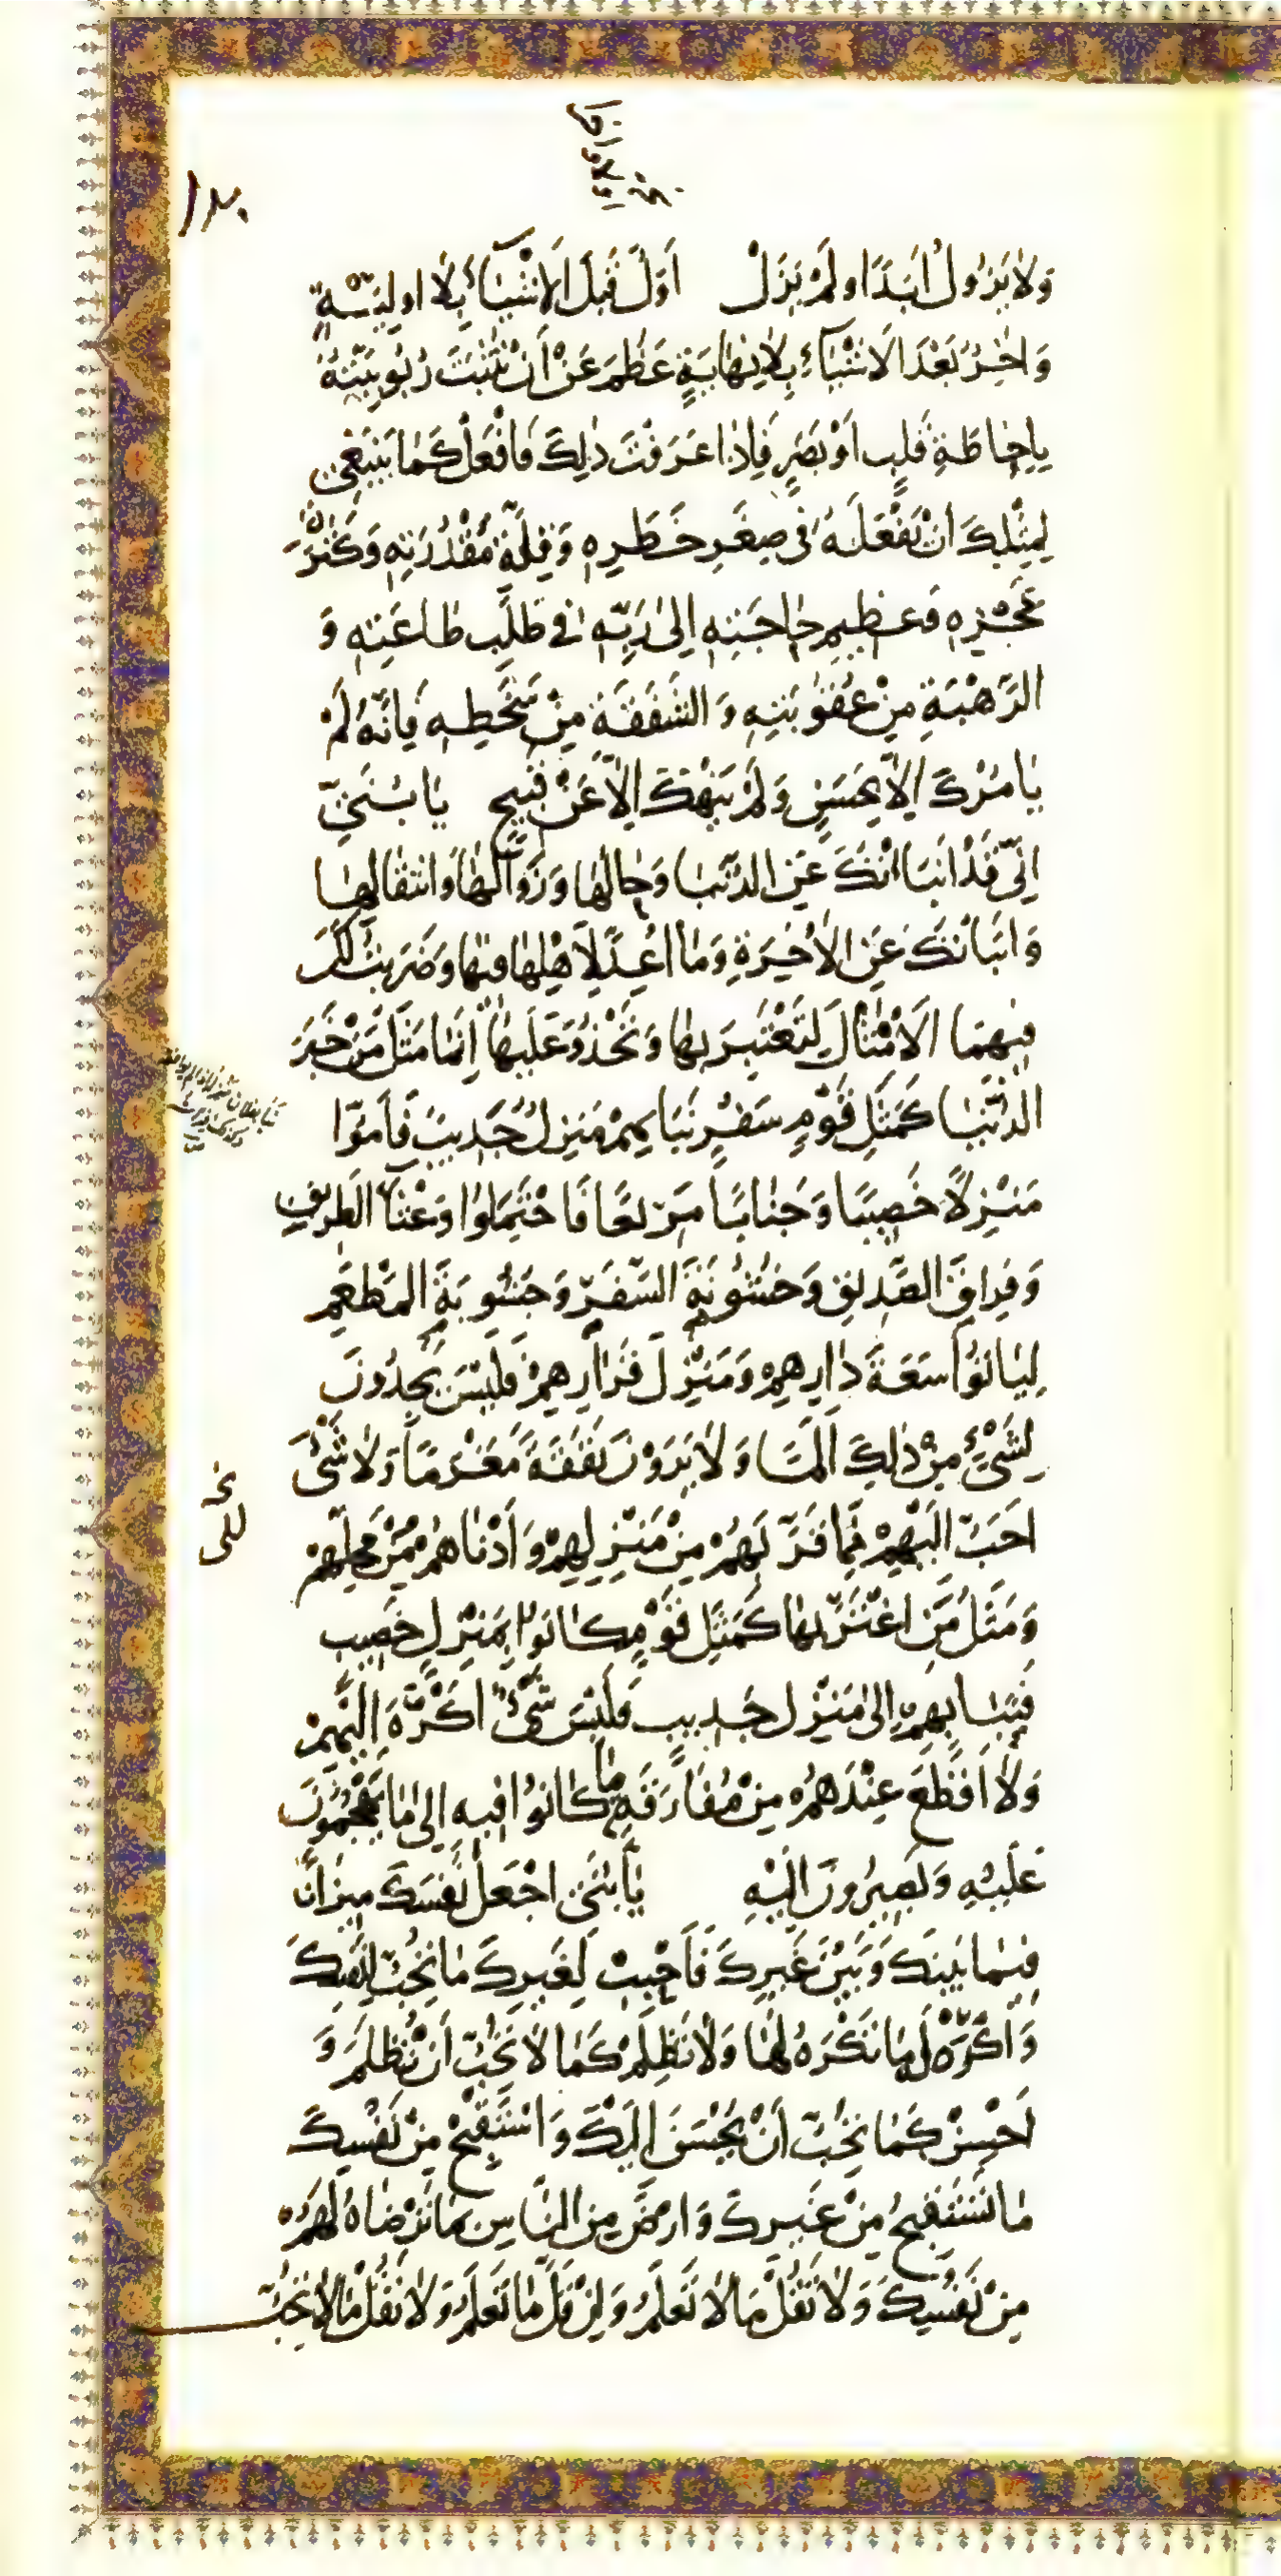 ١٣٠
وَلَا يَزُولُ اَبَدًا وَلَمْ يَزَلْ اَوَّلٌ قَبْلَ الْاَشْيَآءِ بِلَا اَوَّلِيَّةٍ
وَاٰخِرٌ بَعْدَ الْاَشْيَآءِ بِلَا نِهَايَةٍ عَظُمَ عَنْ أَنْ تَثْبُتَ رُبُوبِيَّتُهُ
بِاِحَاطَةِ قَلْبٍ اَوْ بَصَرٍ فَاِذَا عَرَفْتَ ذٰلِكَ فَافْعَلْ كَمَا يَنْبَغِي
لِمِثْلِكَ اَنْ يَفْعَلَهُ فِى صِغَرِ خَطَرِهِ وَقِلَّةِ مَقْدُرَتِهِ وَكَثْرَةِ
عَجْزِهِ وَعَظِيمِ حَاجَتِهِ اِلىٰ رَبِّهِ فِي طَلَبِ طَاعَتِهِ وَ
الرَّهْبَةِ مِنْ عُقُوبَتِهِ وَ الشَّفَقَةِ مِنْ سَخَطِهِ فَاِنَّهُ لَمْ
يَامُرْكَ اِلَّا بِحَسَنٍ وَلَمْ يَنْهَكَ اِلَّا عَنْ قَبِيحٍ يَا بُنَيَّ
اِنِّي قَدْ اَنْبَاْتُكَ عَنِ الدُّنْيَا وَحَالِهَا وَزَوَالِهَا وَانْتِقَالِهَا
وَاَنْبَاْتُكَ عَنِ الْاٰخِرَةِ وَمَا اُعِدَّ لِاَهْلِهَا فِيهَا وَضَرَبْتُ لَكَ
فِيهِمَا الْاَمْثَالَ لِتَعْتَبِرَ بِهَا وَتَحْذُوَ عَلَيْهَا اِنَّمَا مَثَلُ مَنْ خَبَرَ
الدُّنْيَا كَمَثَلِ قَوْمٍ سَفْرٍ نَبَا بِهِمْ مَنْزِلٌ جَدِيبٌ فَاَمُّوا
مَنْزِلًا خَصِيبًا وَجَنَابًا مَرِيعًا فَاحْتَمَلُوا وَعْثَآءَ الطَّرِيقِ
وَفِرَاقَ الصَّدِيقِ وَخُشُونَةَ السَّفَرِ وَجُشُوبَةَ المَطْعَمِ
لِيَاتُوا سَعَةَ دَارِهِمْ وَمَنْزِلَ قَرَارِهِمْ فَلَيْسَ يَجِدُونَ
لِشَيْءٍ مِنْ ذٰلِكَ اَلَمًا وَلَا يَرَوْنَ نَفَقَةً مَغْرَمًا وَلَا شَىْءَ
اَحَبُّ اِلَيْهِمْ مِمَّا قَرَّبَهُمْ مِنْ مَنْزِلِهِمْ وَاَدْنَاهُمْ مِنْ مَحَلِّهِمْ
وَمَثَلُ مَنِ اغْتَرَّ بِهَا كَمَثَلِ قَوْمٍ كَانُوا بِمَنْزِلٍ خَصِيبٍ
فَنَبَا بِهِمْ اِلىٰ مَنْزِلٍ جَدِيبٍ فَلَيْسَ شَيْءٌ اَكْرَهَ اِلَيْهِمْ
وَلَا اَفْظَعَ عِنْدَهُمْ مِنْ مُفَارَقَةِ مَا كَانُوا فِيهِ اِلىٰ مَا يَهْجُمُونَ
عَلَيْهِ وَيَصِيرُونَ اِلَيْهِ يَا بُنَيَّ اجْعَلْ نَفْسَكَ مِيزَانًا
فِيمَا بَيْنَكَ وَبَيْنَ غَيْرِكَ فَاَحْبِبْ لِغَيْرِكَ مَا تُحِبُّ لِنَفْسِكَ
وَاكْرَهْ لَهُ مَا تَكْرَهُ لَهَا وَلَا تَظْلِمْ كَمَا لَا تُحِبُّ اَنْ تُظْلَمَ وَ
اَحْسِنْ كَمَا تُحِبُّ اَنْ يُحْسَنَ اِلَيْكَ وَاسْتَقْبِحْ مِنْ نَفْسِكَ
مَا تَسْتَقْبِحُ مِنْ غَيْرِكَ وَارْضَ مِنَ النَّاسِ بِمَا تَرْضَاهُ لَهُمْ
مِنْ نَفْسِكَ وَلَا تَقُلْ مَا لَا تَعْلَمُ وَاِنْ قَلَّ مَا تَعْلَمُ وَلَا تَقُلْ مَا لَا تُحِبُّ